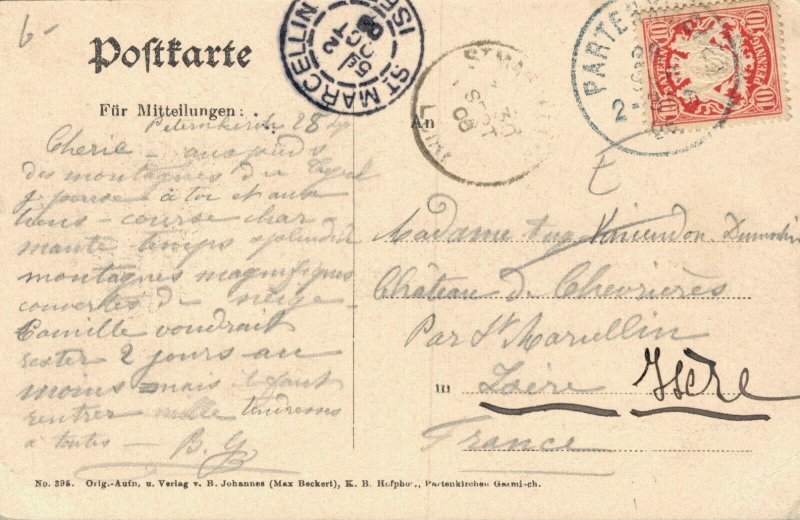 Postkarte
Für Mitteilungen:
An
Chérie – aux pieds
des montagnes du Tyrol
je pense à toi et aux
tiens – course char-
mante temps splendide
montagnes magnifiques
couvertes de neige –
Camille voudrait
rester 2 jours au
moins – mais il faut
rentrer mille tendresses
à toutes – B. G.
ST MARCELLIN
ISÈRE
5E
2
OCT
PARTENKIRCHEN
BAYERN
10 PFENNIG 10
Madame Aug
Château de Chevrières
Par St Marcellin
in Isère Isère
France
No. 395. Orig.-Aufn. u. Verlag v. B. Johannes (Max Beckert), K. B. Hofphot., Partenkirchen Garmisch.